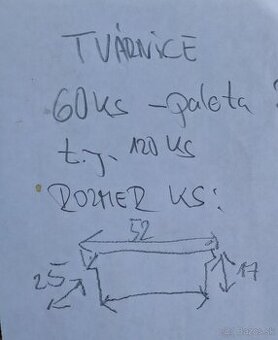 TVÁRNICE
60 KS - paleta
t.j. 120 KS
ROZMER KS:
52
25 17
Bazos.sk